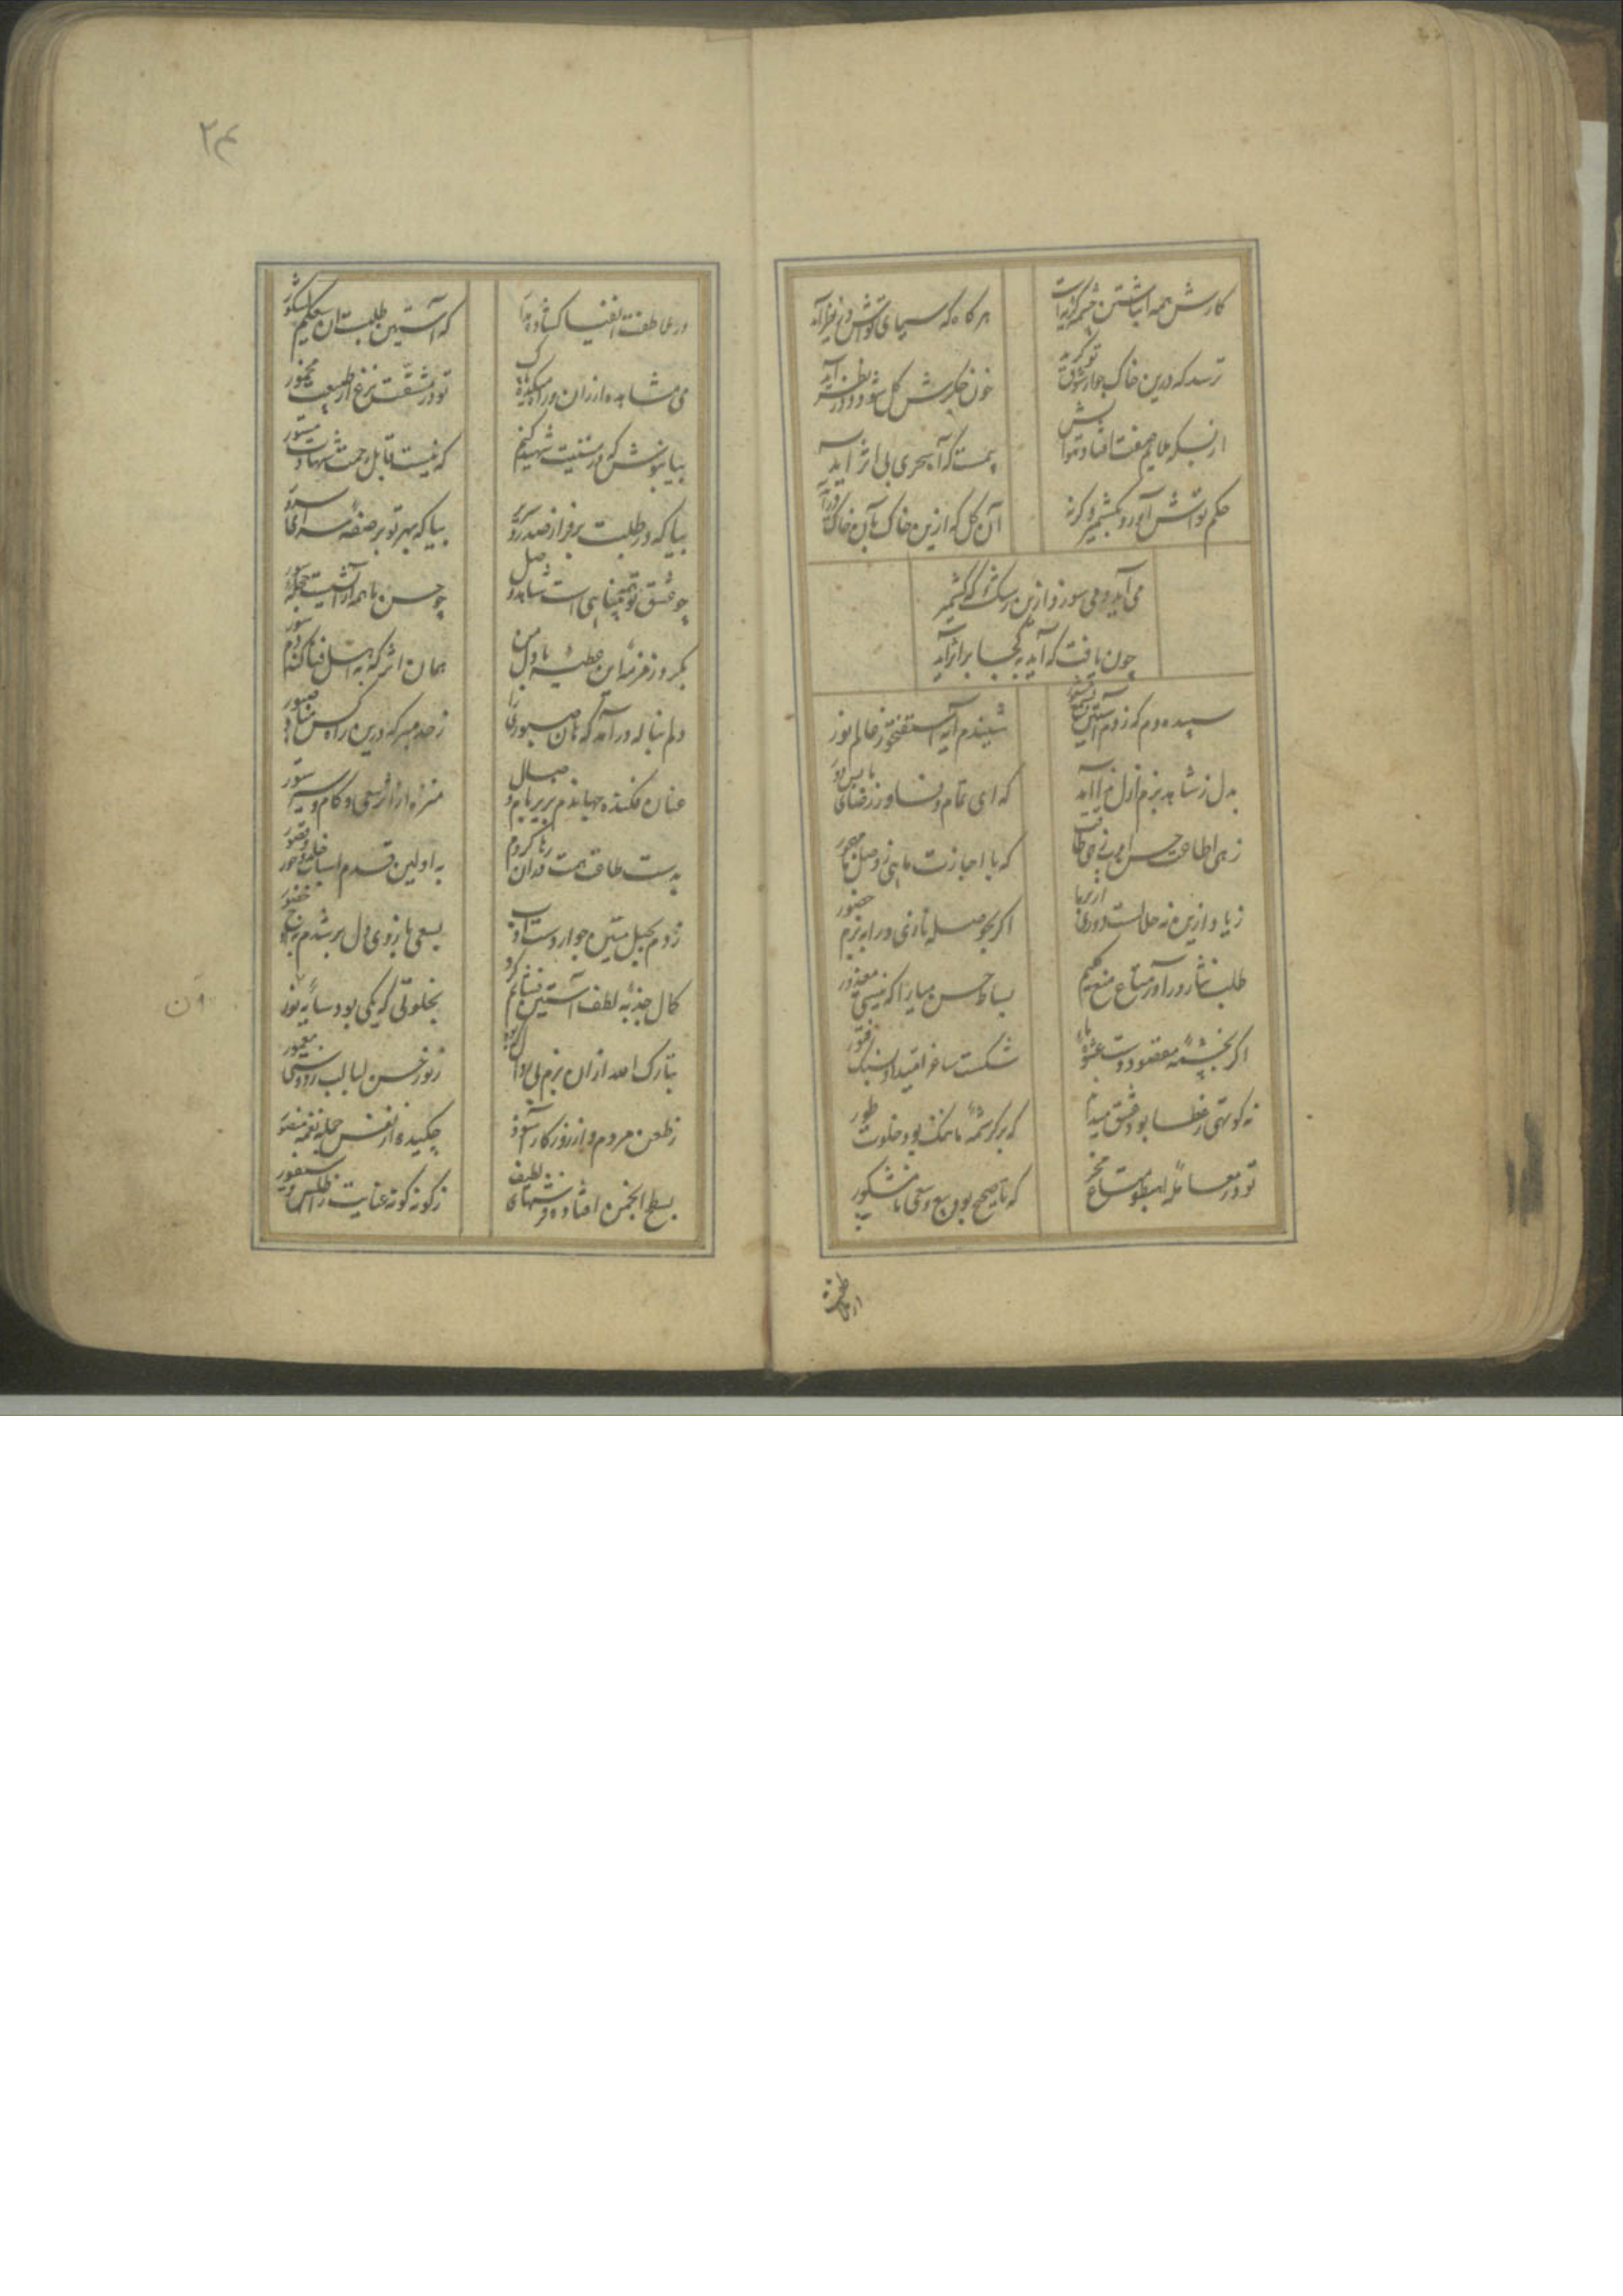 کارش همه انباشتن چشمه گریه است
هر گاه که سیمای تو اش در نظر آید
ترسد که درین خاک چو از شوق تو گرید
خون جگرش گل شود و در نظر آید
از بسکه ملایم صفت افتاد هوایش
بیمست که آه سحری بی اثر آید
حکم تواش آورد بکشمیر و گرنه
آن گل که ازین خاک بآن خاک در آید
می آید و می سوزد ازین رشک که کشمیر
چون یافت که آید بکجا بر اثر آید
سپیده دم که زدم آستین بشمع شعور
شنیدم آیه استفتحوا ز عالم نور
بدل ز شاهد بزم ازل ندا آمد
که ای تمام وفا و ز رضای ما بس دور
زهی اطاعت حسن ادب زهی طاقت
که با اجازت مائی ز وصل ما مهجور
زیاده ازین نه حلالست دوری از بر ما
اگر بحوصله نازی درا به بزم حضور
طلب نثار در آور متاع منع کلیم
بساط حسن میارا که نیستی معذور
اگر بچشمه مقصود دست عشوه ما
شکست ساغر امیدت از سنگ فتور
نه کوتهی ز عطا بود عشق میداند
که هر کرشمه ما تنگ بود خلوت طور
تو در معامله اهبطوا مشاع مخر
که ناصحیح بود بیع و سعی ما مشکور
در عاطفت القیا کشاده بیا
که آستین طلبت ان سعیکم لمشکور
می مشاهده ارزان در میکده باک
تو در مشقت نزع از طبیعت مخمور
بیا بنوش که در سنت شهید کنیم
که نیست قابل رحمت شهادت مستور
بیا که در طلبت بر فراز صدر سریر
بیا که بهر تو بر صفه سرای سرور
چو عشق تو بتمنایی است شاهد وصل
چو حسن ما همه آرایشست حجله سور
بگیر و ز مزمه این عطیه با دل من
همان اثر که به اهل فنا کند دم صور
دلم بناله در آمد که هان صبوری را
ز حد مبر که درین راه کس مباد صبور
عنان فکنده جهاندم بزیر بام وصال
منزه از اثر سعی و گام و سیر ستور
بدست طاقت همت فدان رها کردم
به اولین قدم اسباب خلد و حور و قصور
زدم بحبل متین جوار دست ادب
بسعی بازوی دل بر شدم به اوج حضور
کمال جذبه لطف آستین فشانم کرد
بخلوتی که یکی بود سایه با نور
تبارک الله ازان بزم بی زوال که بود
ز نور حسن لبالب ز دوستی معمور
ز طعن مردم و از روزگار آسوده
چکیده از نفس جمله نغمه منصور
بسیط انجمن افتاده فرشهای لطیف
ز گونه گونه عنایت ز اطلس و سیفور
از طره
آن
۲۴